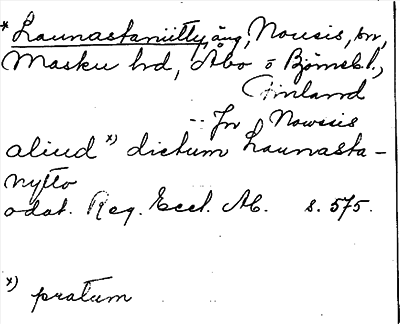 * Launastaniitty, äng, Nousis, sn,
Masku hd, Åbo o Björnebl.,
Finland
-- In Nowsis
aliud *) dictum Launasta-
nytto
odat. Reg. Eccl. Ab. s. 575.
*) pratum